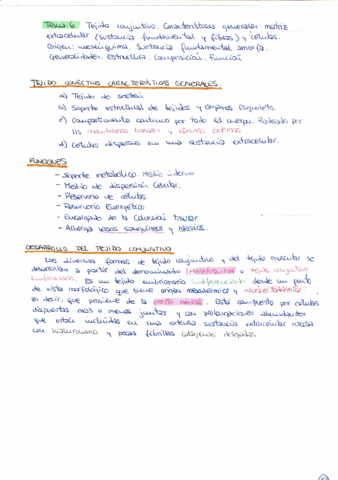 Tema 6. Tejido conjuntivo. Características generales: matriz
extracelular (sustancia fundamental y fibras) y células.
Origen: mesénquima. Sustancia fundamental amorfa.
Generalidades. Estructura. Composición. Función
TEJIDO CONECTIVO CARACTERÍSTICAS GENERALES
a) Tejido de sostén
b) Soporte estructural de tejidos y órganos. Esqueleto.
c) Compartimento continuo por todo el cuerpo. Rodeado por
las membranas basales y láminas externas.
d) Células dispersas en una sustancia extracelular.
FUNCIONES
- Soporte metabólico. Medio interno
- Medio de dispersión celular.
- Reservorio de células.
- Reservorio Energético.
- Encargado de la Cohesión tisular
- Alberga vasos sanguíneos y nervios.
DESARROLLO DEL TEJIDO CONJUNTIVO
Las diversas formas de tejido conjuntivo y del tejido muscular se
desarrollan a partir del denominado mesénquima o tejido conjuntivo
embrionario. Es un tejido embrionario indiferenciado desde un punto
de vista morfológico que tiene origen mesodérmico y neuroectodérmico
es decir, que proviene de la cresta neural. Está compuesto por células
dispuestas más o menos juntas y con prolongaciones abundantes
que están incluidas en una extensa sustancia extracelular viscosa
con hialuronano y pocas fibrillas colágenas delgadas